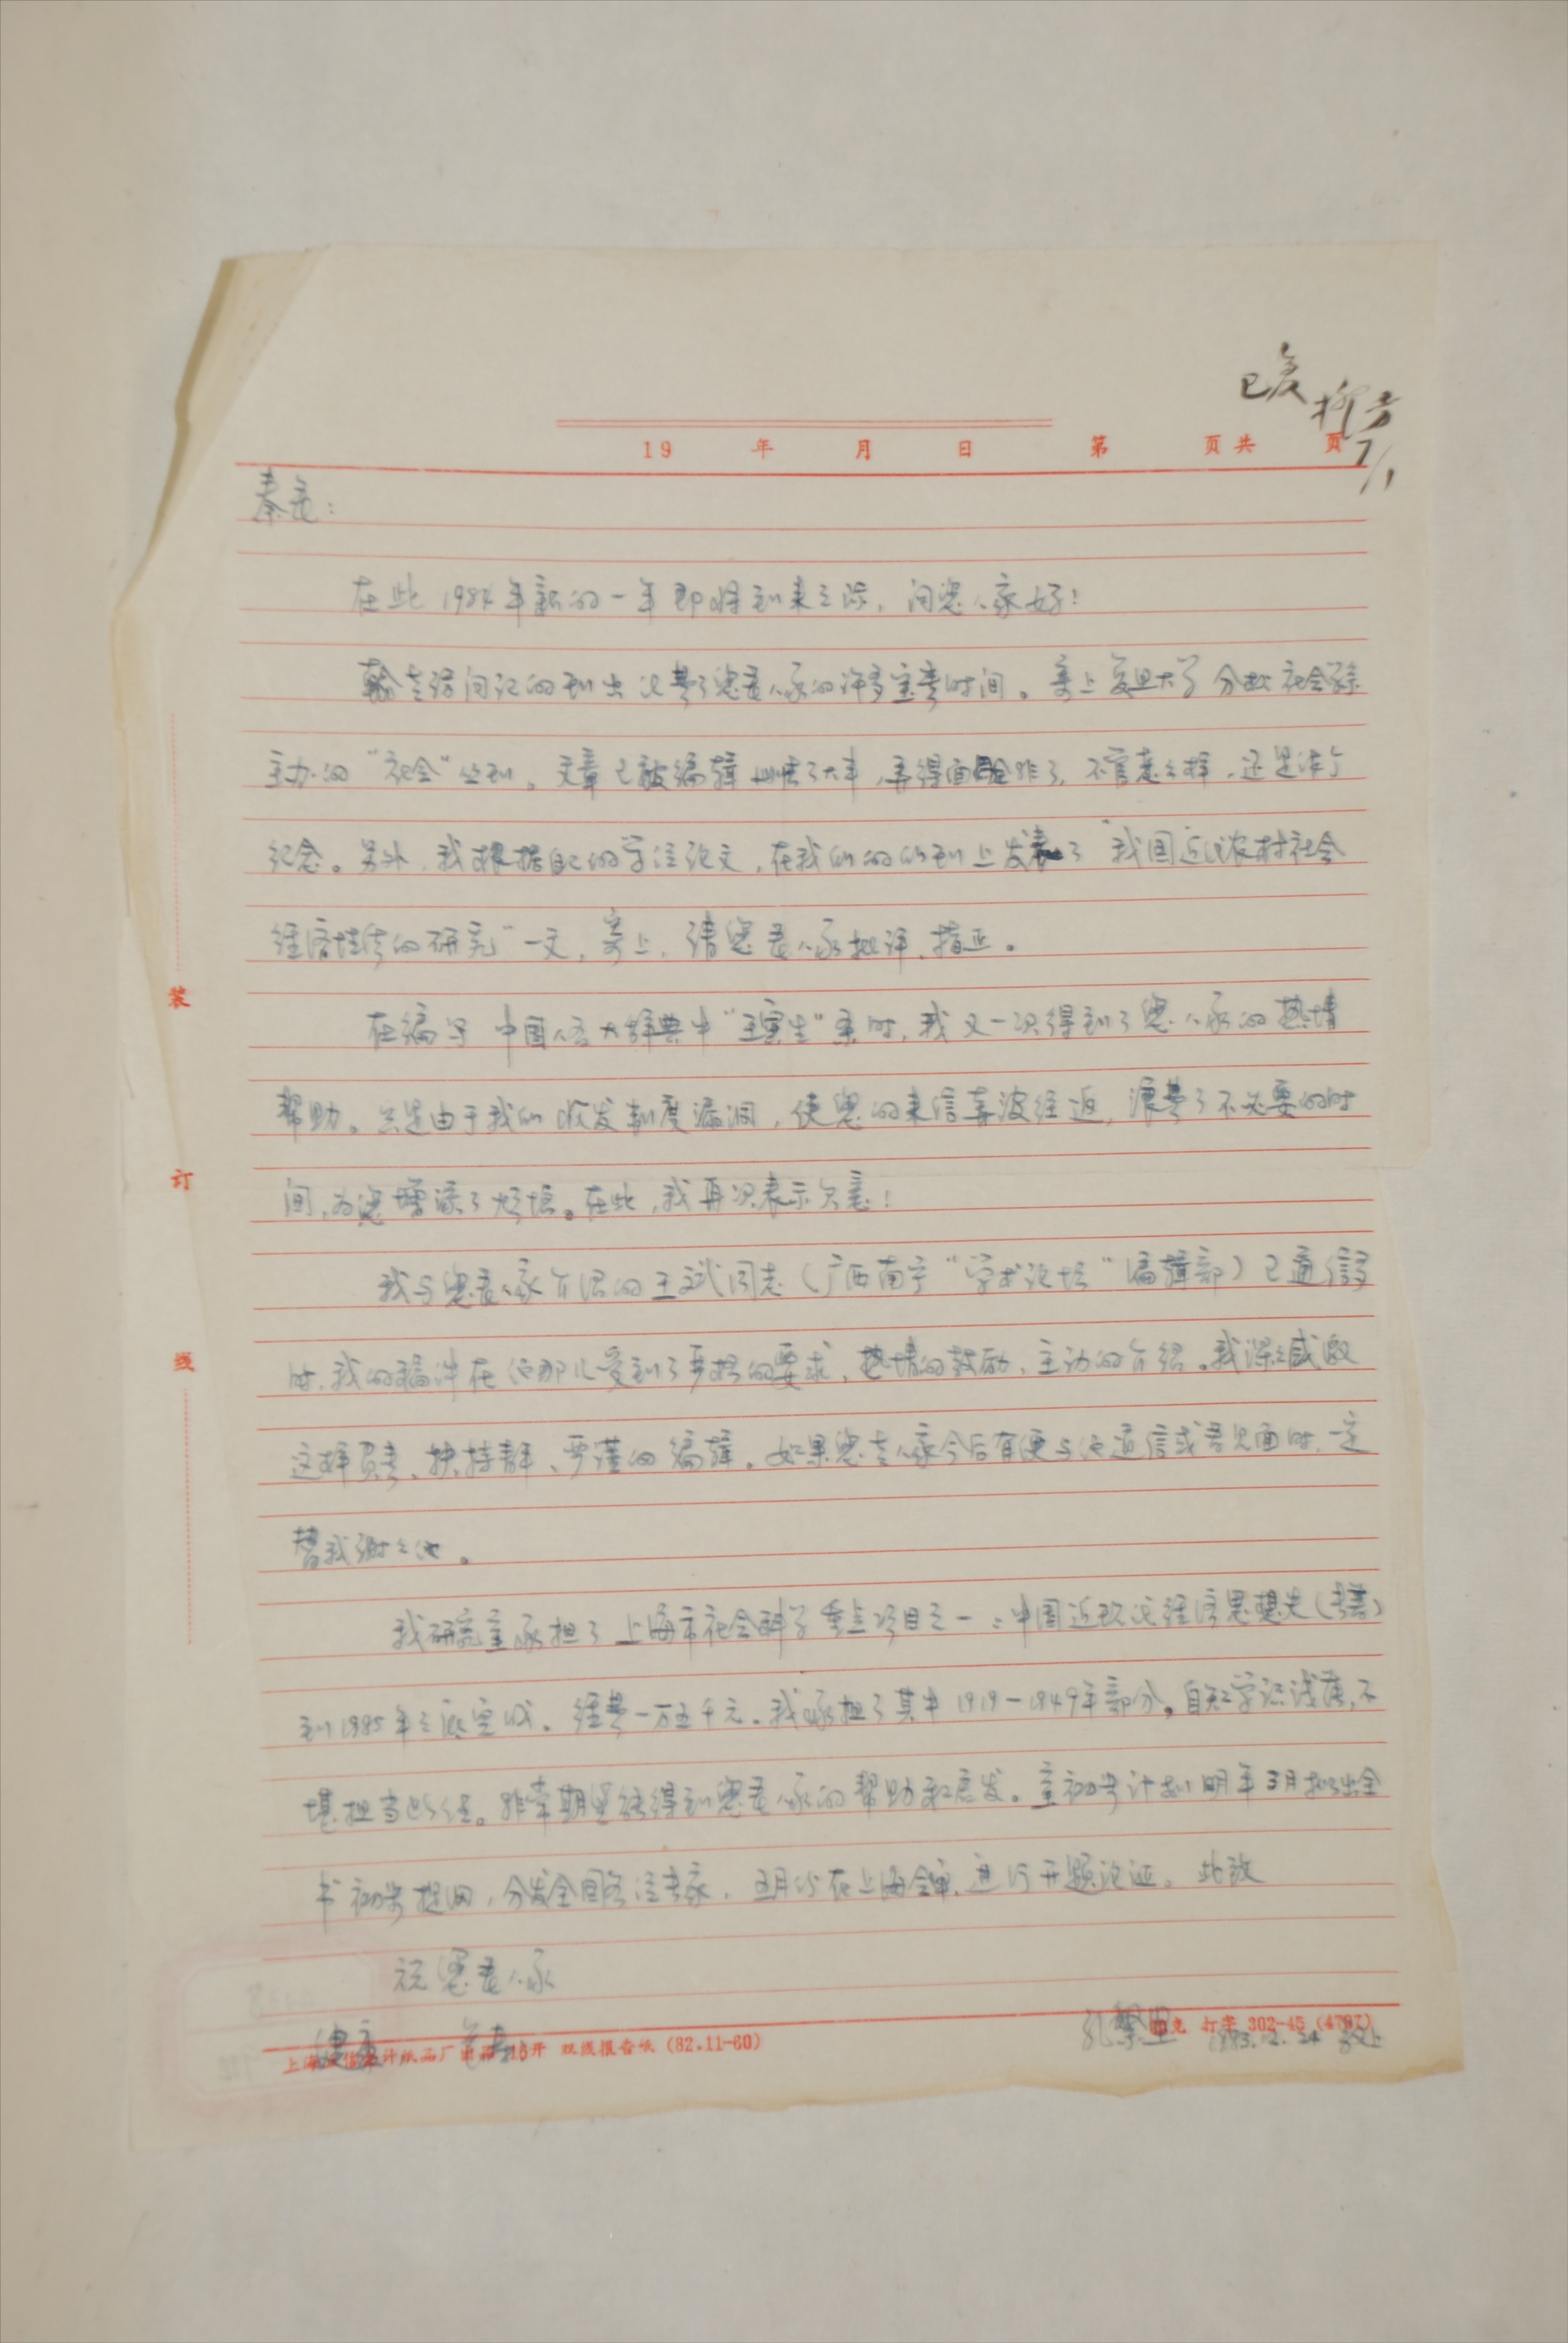 已复 柳方
7/1
19 年 月 日 第 页共 页
秦老：
在此1984年新的一年即将到来之际，问您人家好！
翰老访问记的刊出，花费了您老人家的许多宝贵时间。寄上复旦大学分校社会学系
主办的“社会”丛刊。文章已被编辑删了大半，弄得面目全非了，不管怎么样，还是作个
纪念。另外，我根据自己的学位论文，在我们的所刊上发表了“我国近代农村社会
经济性质的研究”一文，寄上，请您老人家批评、指正。
在编写中国人名大辞典中“王寅生”条时，我又一次得到了您人家的热情
帮助。只是由于我们收发制度漏洞，使您的来信奔波往返，浪费了不必要的时
间，为您增添了麻烦。在此，我再次表示欠意！
我与您老人家介绍的王斌同志（广西南宁“学术论坛”编辑部）已通信多
时，我的稿件在他那儿受到了严格的要求，热情的鼓励，主动的介绍。我深深感激
这样负责、扶持青年、严谨的编辑。如果您老人家今后有便与他通信或者见面时，一定
替我谢谢他。
我研究室承担了上海市社会科学重点项目之一：中国近现代经济思想史（专著）
到1985年之底完成。经费一万五千元。我承担了其中1919—1949年部分。自知学识浅薄，不
堪担当此任。非常期望能得到您老人家的帮助和启发。室初步计划明年3月拟出全
书初步提纲，分发全国各位专家，五月份在上海会审，进行开题论证。此致
祝您老人家
健康 长寿
孔繁
1983.12.24 敬上
装
订
线
上海 计纸品厂出品 16开 双线报告纸 (82.11-60)
克 打字 302-45 (4787)